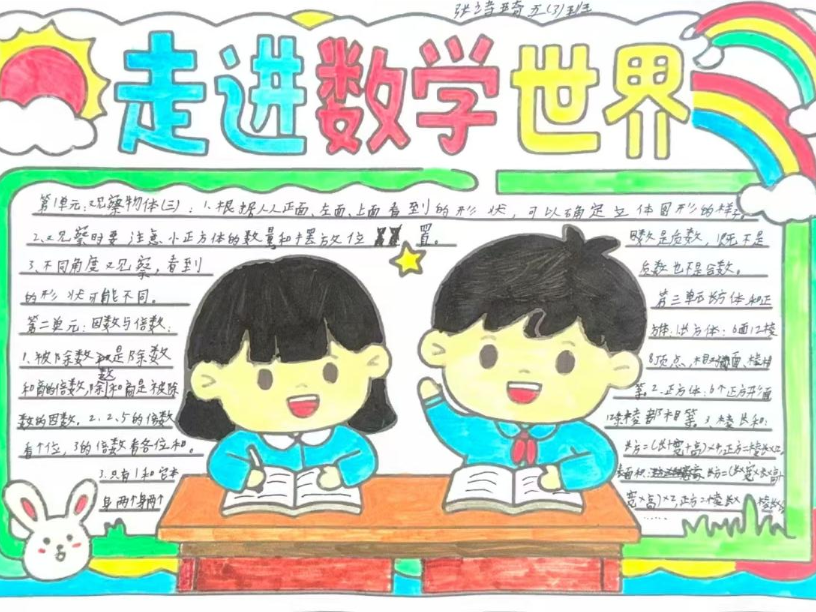 张诗琦五(3)班
走进数学世界
第1单元:观察物体(三):1.根据从正面、左面、上面看到的形状,可以确定立体图形的样子
2.观察时要注意小正方体的数量和摆放位置。
3.不同角度观察,看到
的形状可能不同。
第二单元:因数与倍数:
1.被除数是除数
和商的倍数,除数和商是被除
数的因数。2、2、5的倍数
看个位,3的倍数看各位和。
3.只有1和它本
身两个
数是质数,1既不是
质数也不是合数。
第三单元长方体和正
方体:1.长方体:6面12棱
8顶点,相对面、棱相
等。2、正方体:6个正方形面
12条棱都相等。3、棱长和:
长方=(长+宽+高)×4,正方=棱长×12
宽×高)×2,正方=棱长×棱长×